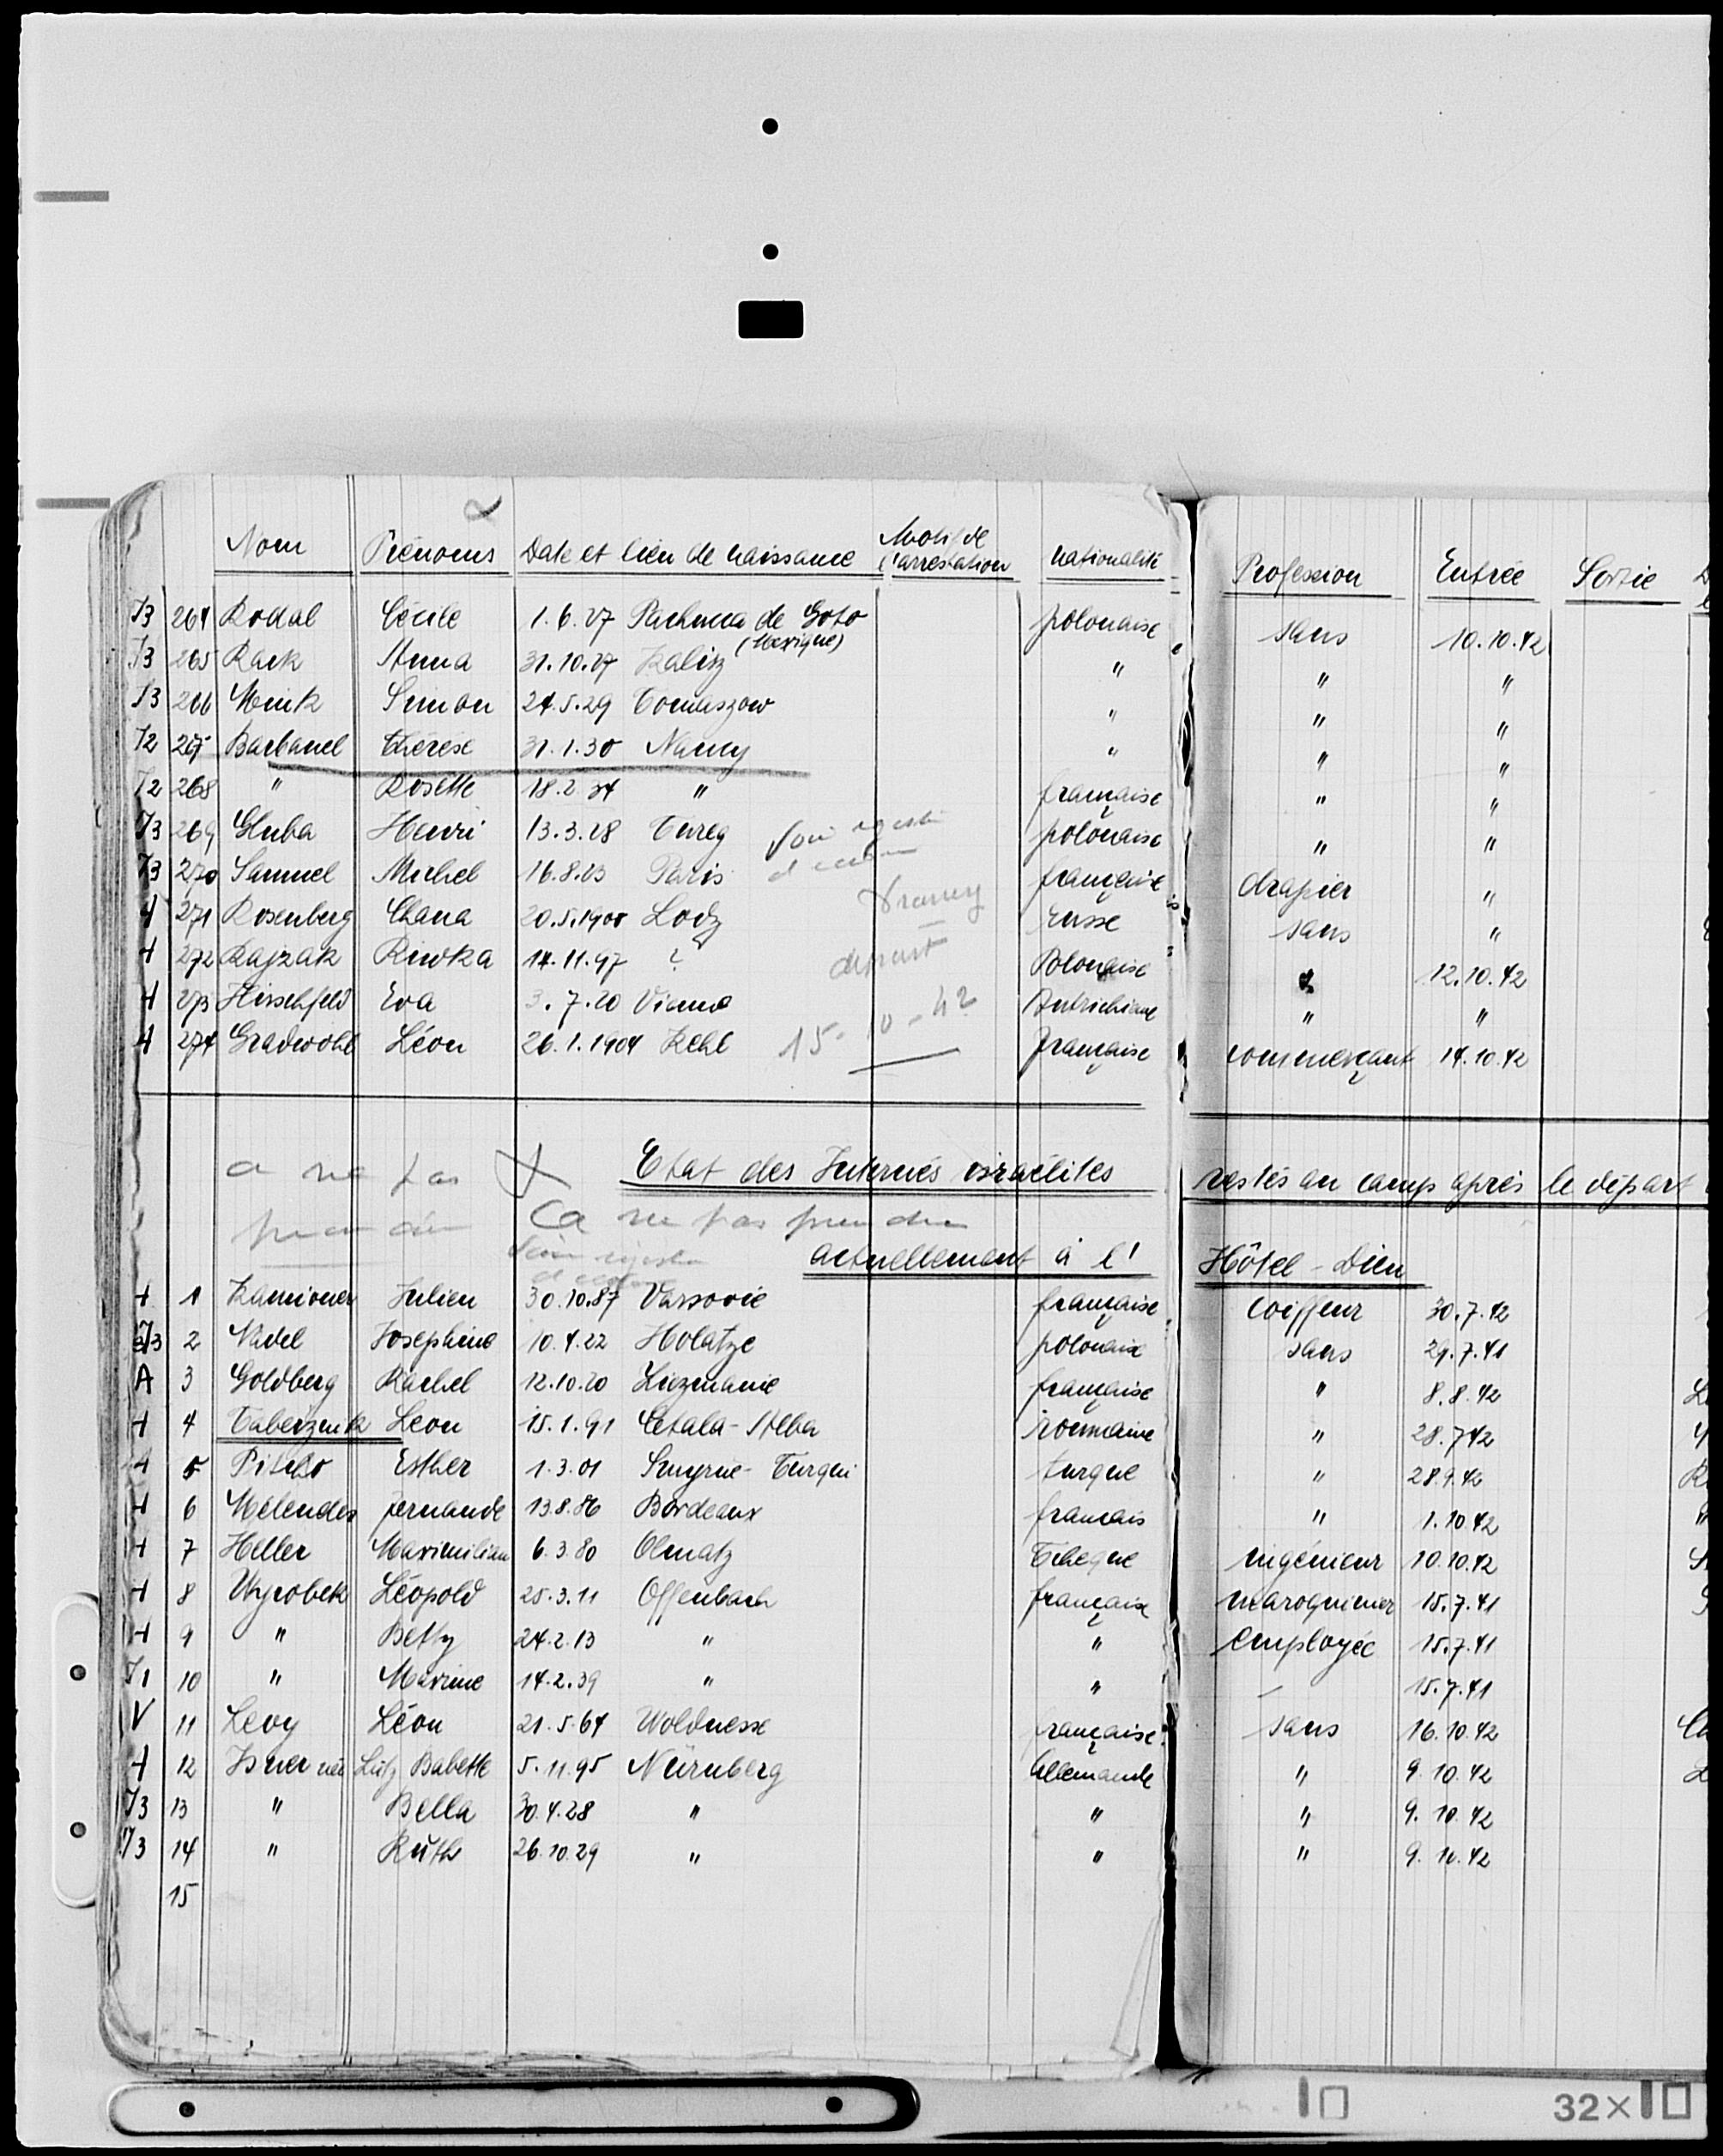 Nom Prénoms Date et lieu de naissance Motif de l'arrestation nationalité Profession Entrée Sortie
J3 264 Rodal Cécile 1.6.27 Pachuca de Soto (Mexique) polonaise sans 10.10.42
J3 265 Rack Anna 31.10.27 Kalisz " " "
J3 266 Mink Simon 24.5.29 Tomaszow " " "
J2 267 Barbanel Thérèse 31.1.30 Nancy " " "
J2 268 " Rosette 18.2.34 " française " "
J3 269 Gluba Henri 13.3.28 polonaise " "
J3 270 Samuel Michel 16.8.23 Paris française drapier "
A 271 Rosenberg Chana 20.5.1908 Lodz Drancy russe sans "
A 272 Rajzak Riwka 14.11.97 ? départ Polonaise " 12.10.42
A 273 Hirschfeld Eva 3.7.20 Vienne Autrichienne " "
A 274 Gradwohl Léon 26.1.1904 Kehl 15-10-42 française commerçant 14.10.42
a ne pas Etat des Internés israélites restés au camp après le départ
prendre Ca ne pas prendre
actuellement à l' Hôtel-Dieu
A 1 Kamioner Julien 30.10.87 Varsovie française coiffeur 30.7.42
J3 2 Nadel Josephine 10.4.22 Holatze polonaise sans 29.7.41
A 3 Goldberg Rachel 12.10.20 française " 8.8.42
A 4 Leon 15.1.91 Cetala-Alba roumaine " 28.7.42
A 5 Pitcho Esther 1.3.01 Smyrne - Turquie turque " 28.9.42
A 6 Mélendes fernande 13.8.86 Bordeaux français " 1.10.42
A 7 Heller Maximilian 6.3.80 Olmatz Tchèque ingénieur 10.10.42
A 8 Wyrobek Léopold 25.3.11 Offenbach française maroquinier 15.7.41
A 9 " Betty 24.2.13 " " employée 15.7.41
J1 10 " Maxime 14.2.39 " " — 15.7.41
V 11 Levy Léon 21.5.64 française sans 16.10.42
A 12 Isner née Lutz Babette 5.11.95 Nürnberg Allemande " 9.10.42
J3 13 " Bella 30.4.28 " " " 9.10.42
J3 14 " Ruth 26.10.29 " " " 9.10.42
15
32×